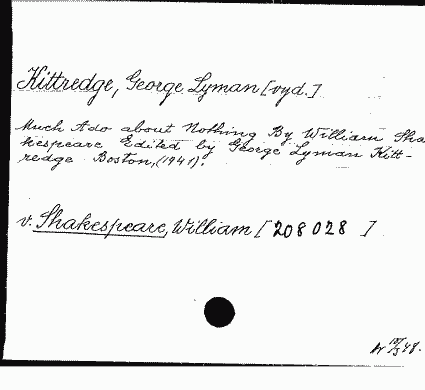 Kittredge, George Lyman [vyd.]
Much Ado about Nothing By William Sha
kespeare Edited by George Lyman Kitt-
redge Boston, (1941).
v. Shakespeare, William [208028]